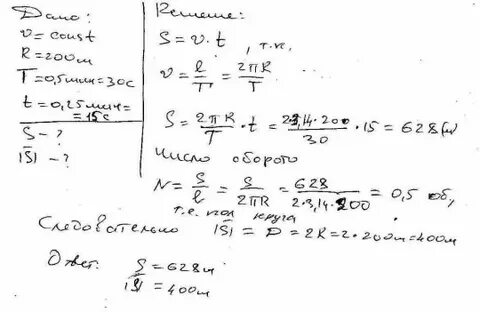 Дано:
v = const
R = 200м
T = 0,5мин = 30с
t = 0,25мин =
= 15с
S - ?
|S̄| - ?
Решение:
S = v · t , т.к.
v = l/T = 2πR/T
S = 2πR/T · t = 2·3,14·200/30 · 15 = 628 (м)
Число оборото
N = S/l = S/2πR = 628/2·3,14·200 = 0,5 об,
т.е. пол круга
Следовательно |S̄| = D = 2R = 2·200м = 400м
Ответ: S = 628м
|S̄| = 400м